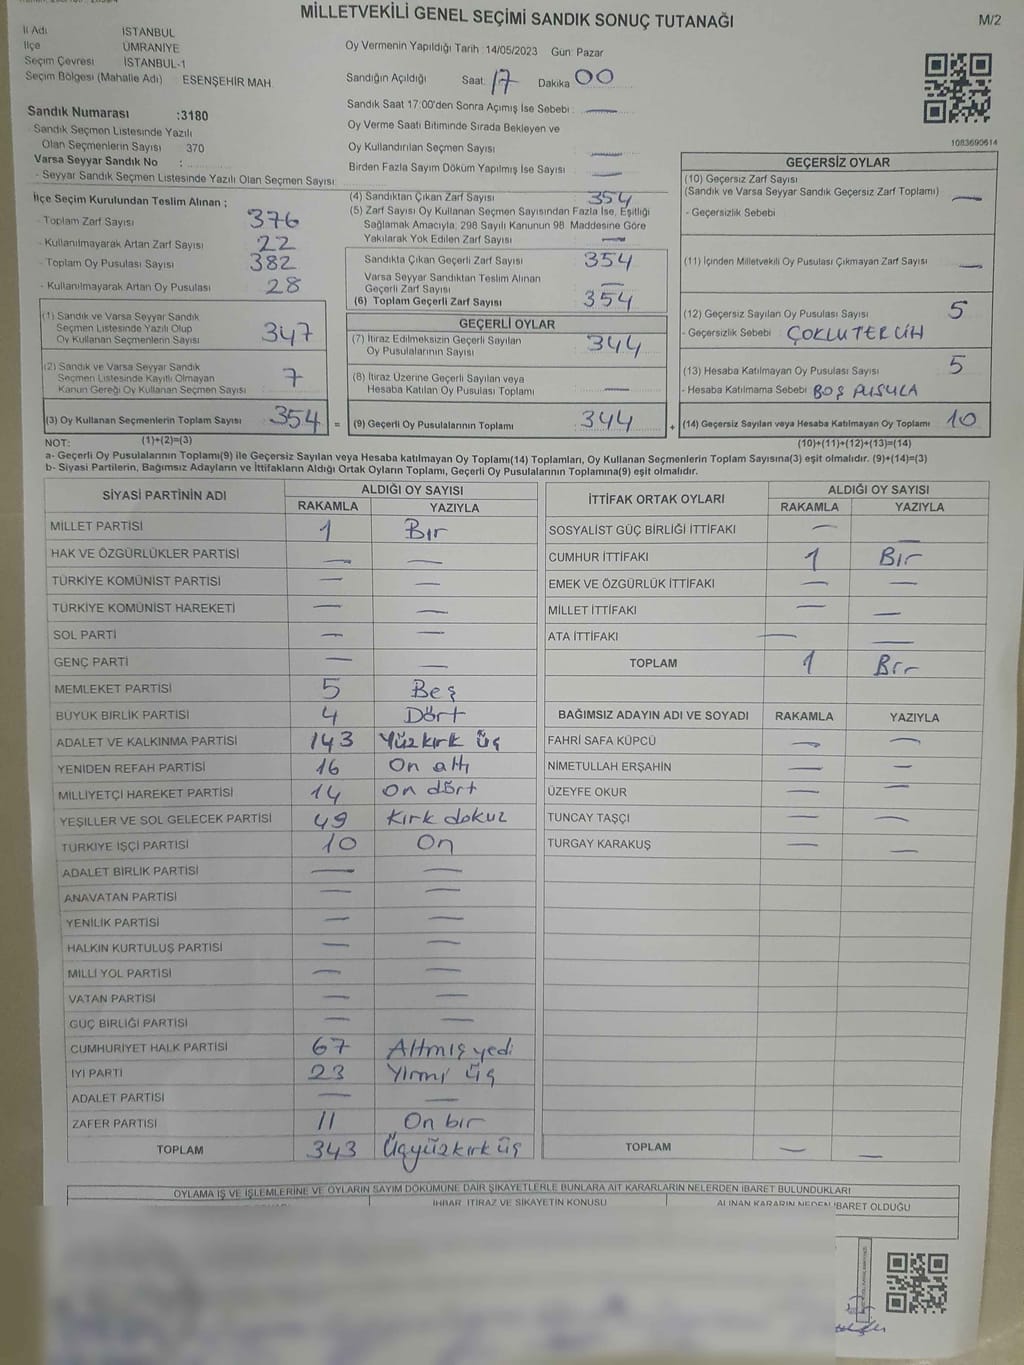 MİLLETVEKİLİ GENEL SEÇİMİ SANDIK SONUÇ TUTANAĞI
M/2
İl Adı İSTANBUL
İlçe ÜMRANİYE
Seçim Çevresi İSTANBUL-1
Seçim Bölgesi (Mahalle Adı) ESENŞEHİR MAH
Oy Vermenin Yapıldığı Tarih :14/05/2023 Gün: Pazar
Sandığın Açıldığı Saat: 17 Dakika 00
Sandık Saat 17:00'den Sonra Açımış İse Sebebi : —
Oy Verme Saati Bitiminde Sırada Bekleyen ve
Oy Kullandırılan Seçmen Sayısı : —
Birden Fazla Sayım Döküm Yapılmış İse Sayısı : —
Sandık Numarası :3180
Sandık Seçmen Listesinde Yazılı
Olan Seçmenlerin Sayısı 370
Varsa Seyyar Sandık No :
- Seyyar Sandık Seçmen Listesinde Yazılı Olan Seçmen Sayısı:
1083690614
İlçe Seçim Kurulundan Teslim Alınan ;
- Toplam Zarf Sayısı 376
- Kullanılmayarak Artan Zarf Sayısı 22
- Toplam Oy Pusulası Sayısı 382
- Kullanılmayarak Artan Oy Pusulası 28
(1) Sandık ve Varsa Seyyar Sandık
Seçmen Listesinde Yazılı Olup
Oy Kullanan Seçmenlerin Sayısı 347
(2) Sandık ve Varsa Seyyar Sandık
Seçmen Listesinde Kayıtlı Olmayan
Kanun Gereği Oy Kullanan Seçmen Sayısı 7
(3) Oy Kullanan Seçmenlerin Toplam Sayısı 354 =
(4) Sandıktan Çıkan Zarf Sayısı 354
(5) Zarf Sayısı Oy Kullanan Seçmen Sayısından Fazla İse, Eşitliği
Sağlamak Amacıyla; 298 Sayılı Kanunun 98. Maddesine Göre
Yakılarak Yok Edilen Zarf Sayısı —
Sandıkta Çıkan Geçerli Zarf Sayısı 354
Varsa Seyyar Sandıktan Teslim Alınan
Geçerli Zarf Sayısı —
(6) Toplam Geçerli Zarf Sayısı 354
GEÇERLİ OYLAR
(7) İtiraz Edilmeksizin Geçerli Sayılan
Oy Pusulalarının Sayısı 344
(8) İtiraz Üzerine Geçerli Sayılan veya
Hesaba Katılan Oy Pusulası Toplamı —
(9) Geçerli Oy Pusulalarının Toplamı 344 +
GEÇERSİZ OYLAR
(10) Geçersiz Zarf Sayısı
(Sandık ve Varsa Seyyar Sandık Geçersiz Zarf Toplamı) —
- Geçersizlik Sebebi
(11) İçinden Milletvekili Oy Pusulası Çıkmayan Zarf Sayısı —
(12) Geçersiz Sayılan Oy Pusulası Sayısı 5
- Geçersizlik Sebebi : ÇOKLU TERCİH
(13) Hesaba Katılmayan Oy Pusulası Sayısı 5
- Hesaba Katılmama Sebebi BOŞ PUSULA
(14) Geçersiz Sayılan veya Hesaba Katılmayan Oy Toplamı 10
NOT: (1)+(2)=(3)
(10)+(11)+(12)+(13)=(14)
a- Geçerli Oy Pusulalarının Toplamı(9) ile Geçersiz Sayılan veya Hesaba Katılmayan Oy Toplamı(14) Toplamları, Oy Kullanan Seçmenlerin Toplam Sayısına(3) eşit olmalıdır. (9)+(14)=(3)
b- Siyasi Partilerin, Bağımsız Adayların ve İttifakların Aldığı Ortak Oyların Toplamı, Geçerli Oy Pusulalarının Toplamına(9) eşit olmalıdır.
SİYASİ PARTİNİN ADI ALDIĞI OY SAYISI
RAKAMLA YAZIYLA
MİLLET PARTİSİ 1 Bir
HAK VE ÖZGÜRLÜKLER PARTİSİ — —
TÜRKİYE KOMÜNİST PARTİSİ — —
TÜRKİYE KOMÜNİST HAREKETİ — —
SOL PARTİ — —
GENÇ PARTİ — —
MEMLEKET PARTİSİ 5 Beş
BÜYÜK BİRLİK PARTİSİ 4 Dört
ADALET VE KALKINMA PARTİSİ 143 Yüz kırk üç
YENİDEN REFAH PARTİSİ 16 On altı
MİLLİYETÇİ HAREKET PARTİSİ 14 on dört
YEŞİLLER VE SOL GELECEK PARTİSİ 49 Kırk dokuz
TÜRKİYE İŞÇİ PARTİSİ 10 On
ADALET BİRLİK PARTİSİ — —
ANAVATAN PARTİSİ — —
YENİLİK PARTİSİ — —
HALKIN KURTULUŞ PARTİSİ — —
MİLLİ YOL PARTİSİ — —
VATAN PARTİSİ — —
GÜÇ BİRLİĞİ PARTİSİ — —
CUMHURİYET HALK PARTİSİ 67 Altmış yedi
İYİ PARTİ 23 Yirmi üç
ADALET PARTİSİ — —
ZAFER PARTİSİ 11 On bir
TOPLAM 343 Üçyüz kırk üç
İTTİFAK ORTAK OYLARI ALDIĞI OY SAYISI
RAKAMLA YAZIYLA
SOSYALİST GÜÇ BİRLİĞİ İTTİFAKI — —
CUMHUR İTTİFAKI 1 Bir
EMEK VE ÖZGÜRLÜK İTTİFAKI — —
MİLLET İTTİFAKI — —
ATA İTTİFAKI — —
TOPLAM 1 Bir
BAĞIMSIZ ADAYIN ADI VE SOYADI RAKAMLA YAZIYLA
FAHRİ SAFA KÜPCÜ — —
NİMETULLAH ERŞAHİN — —
ÜZEYFE OKUR — —
TUNCAY TAŞÇI — —
TURGAY KARAKUŞ — —
TOPLAM — —
OYLAMA İŞ VE İŞLEMLERİNE VE OYLARIN SAYIM DÖKÜMÜNE DAİR ŞİKAYETLERLE BUNLARA AİT KARARLARIN NELERDEN İBARET BULUNDUKLARI
İHBAR, İTİRAZ VE ŞİKAYETİN KONUSU ALINAN KARARIN NEDEN İBARET OLDUĞU